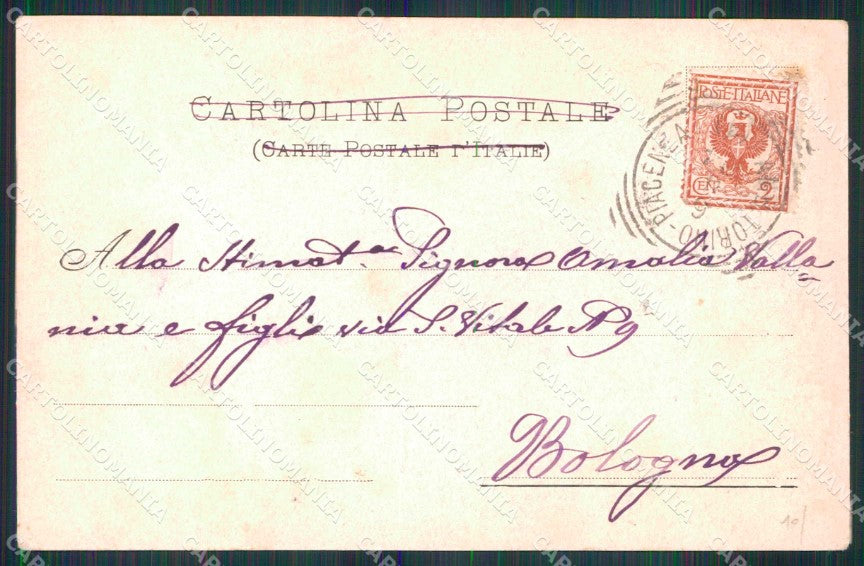 CARTOLINA POSTALE
(CARTE POSTALE D'ITALIE)
POSTE ITALIANE
CEN. 2
TORINO-PIACENZA
Alla Stimat.ma Signora Amalia Valla=
nia e figli via S. Vitale N 9
Bologna
10/
CARTOLINOMANIA